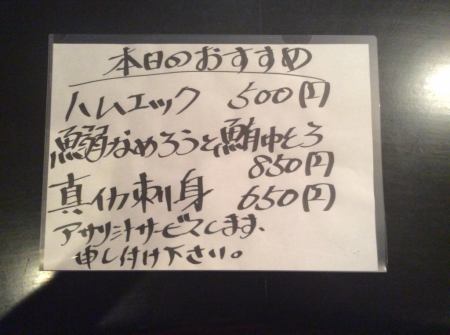 本日のおすすめ
ハムエッグ 500円
鰯なめろうと鮪中とろ
850円
真イカ刺身 650円
アサリ汁サービスします、
申し付け下さい。